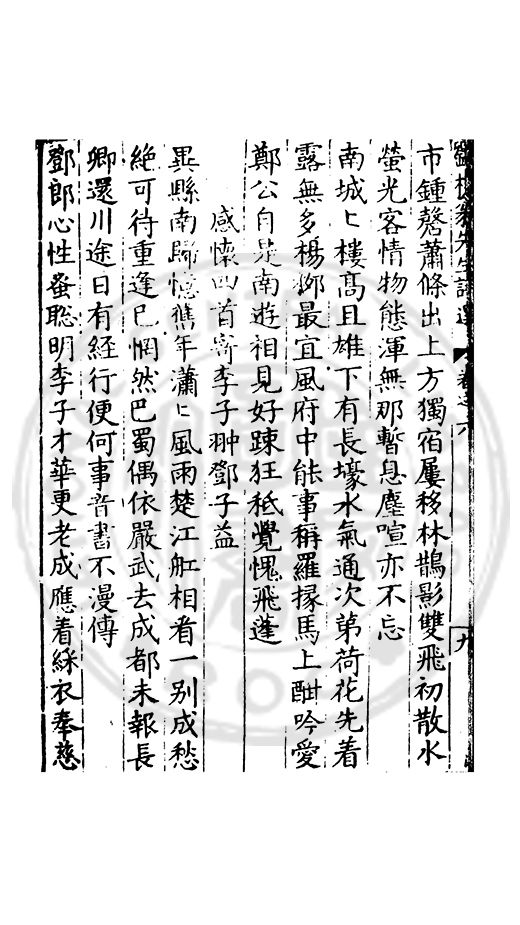 市鍾磬蕭條出上方獨宿屢移林鵲影雙飛初散水
螢光客情物態渾無那暫息塵喧亦不忘
南城〻樓高且雄下有長壕水氣通次第荷花先着
露無多楊柳最宜風府中能事稱羅掾馬上酣吟愛
鄭公自是南遊相見好踈狂秪覺愧飛蓬
感懷四首寄李子翀鄧子益
異縣南歸憶舊年瀟〻風雨楚江舡相看一別成愁
絶可待重逢已惘然巴蜀偶依嚴武去成都未報長
卿還川途日有經行便何事音書不漫傳
鄧郎心性蚤聦明李子才華更老成應着綵衣奉慈